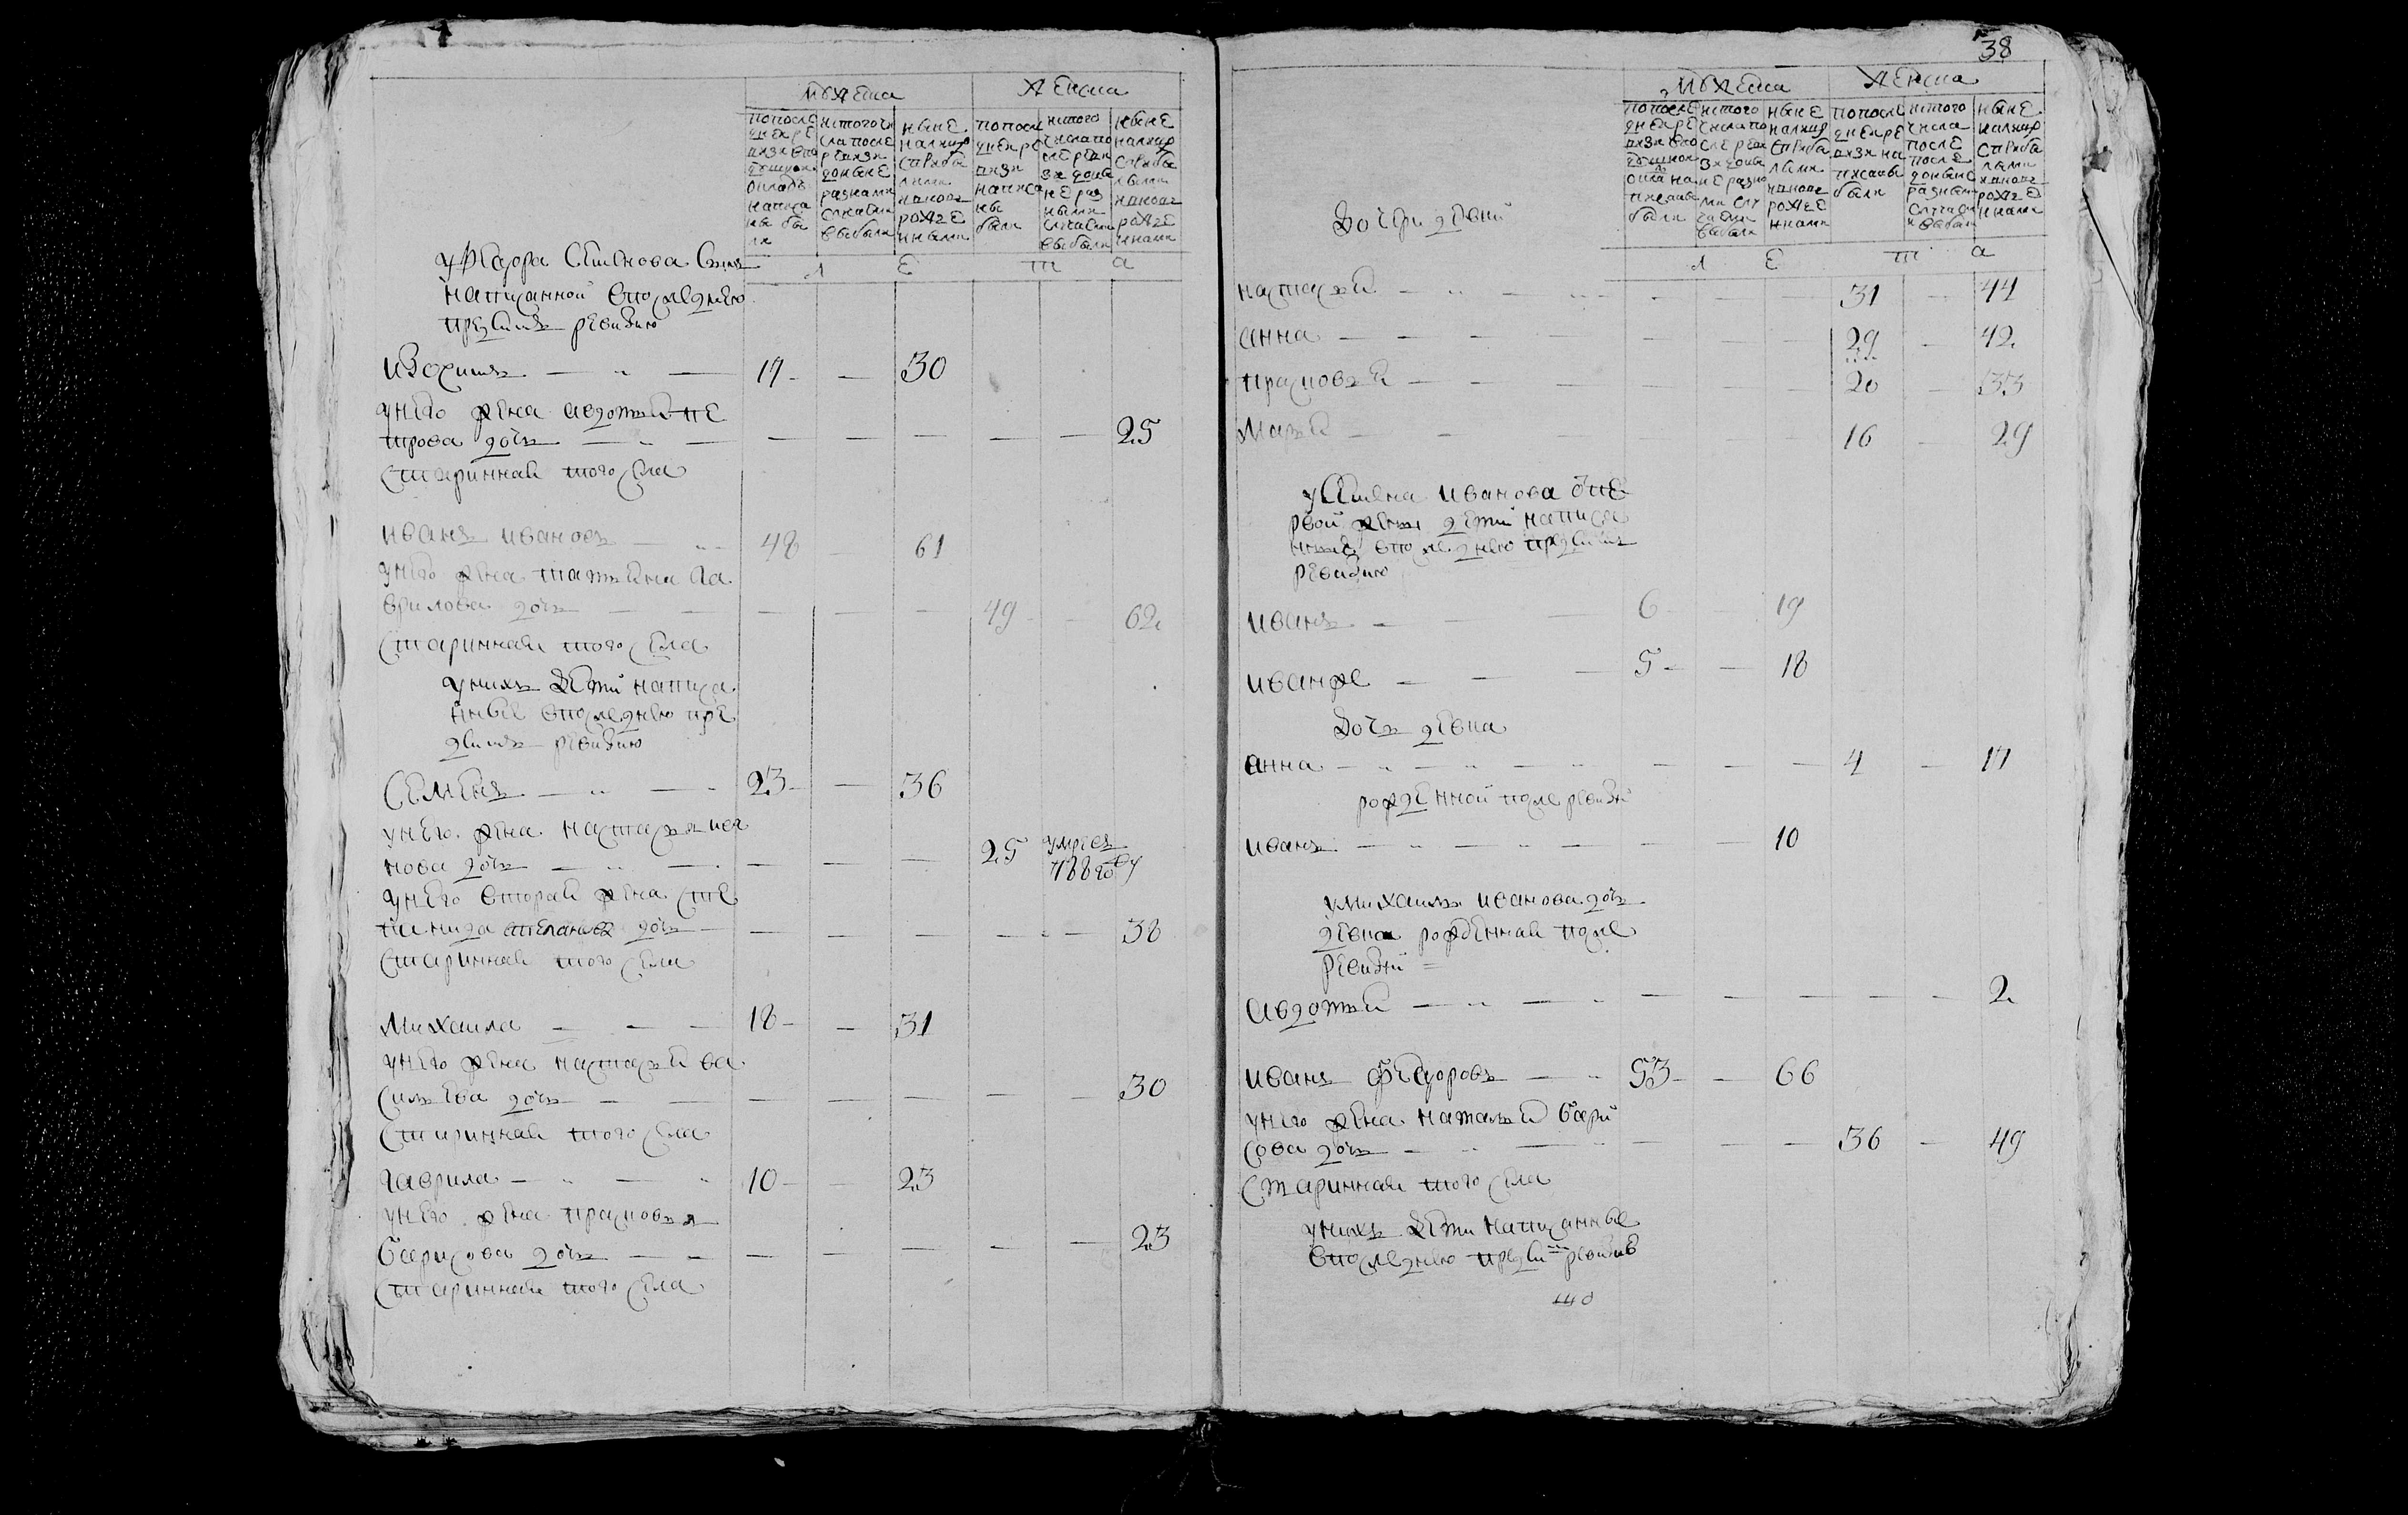 мужеска
женска
по последней ревизи в подушном окладе написаны были
ис того числа после ревизи до ныне разными случаями выбыли
ныне на лицо с прибылыми и вновь рожденными
по последней ревизи написаны были
ис того числа после ревизи до ныне разными случаями выбыли
ныне на лицо с прибылыми и вновь рожденными
л е т а
у Федора Степанова сынъ
написанной в последнею
пред симъ ревизию
17 — 30
у него жена авдотья пе
трова дочь — — — — — — 25
старинная того села
иванъ ивановъ — 48 — 61
у него жена татьяна га
врилова дочь — — — 49 — 62
старинная того села
у нихъ дети написа
нные в последнею пре
д симъ ревизию
семенъ — 23 — 36
у него жена настасья ива
нова дочь — — — — 25 умре въ
788 году
у него вторая жена сте
панида дочь — — — — — 38
старинная того села
михаила — 18 — 31
у него жена настасья ва
сильева дочь — — — — — — 30
старинная того села
гаврила — 10 — 23
у него жена прасковья
борисова дочь — — — — — — 23
старинная того села
38
мужеска
женска
по последней ревизи в подушном окла написаны были
ис того числа после ревизи до ныне разными случаями выбыли
ныне на лицо с прибылыми и вновь рожденными
по последней ревизи написаны были
ис того числа после до ныне разными случаями выбыли
ныне на лицо с прибылыми и вновь рожденными
дочери девки
л е т а
настасья — — — — 31 — 44
анна — — — — 29 — 42
прасковья — — — — 20 — 33
марья — — 16 — 29
у степана иванова от пе
рвой жены дети написа
нныя в последнею пред симъ
ревизию
иванъ — — 6 19
иван же — — 5 — 18
дочь девка
анна — — — — 4 — 17
рожденной после ревизи
иванъ — — — — 10
у михаилы иванова дочь
девка рожденная после
ревизи
авдотья — — — — — — 2
иванъ федоровъ — 53 — 66
у него жена наталья бори
сова дочь — — — — 36 — 49
старинная того села
у нихъ дети написанные
в последнею пред симъ ревизию